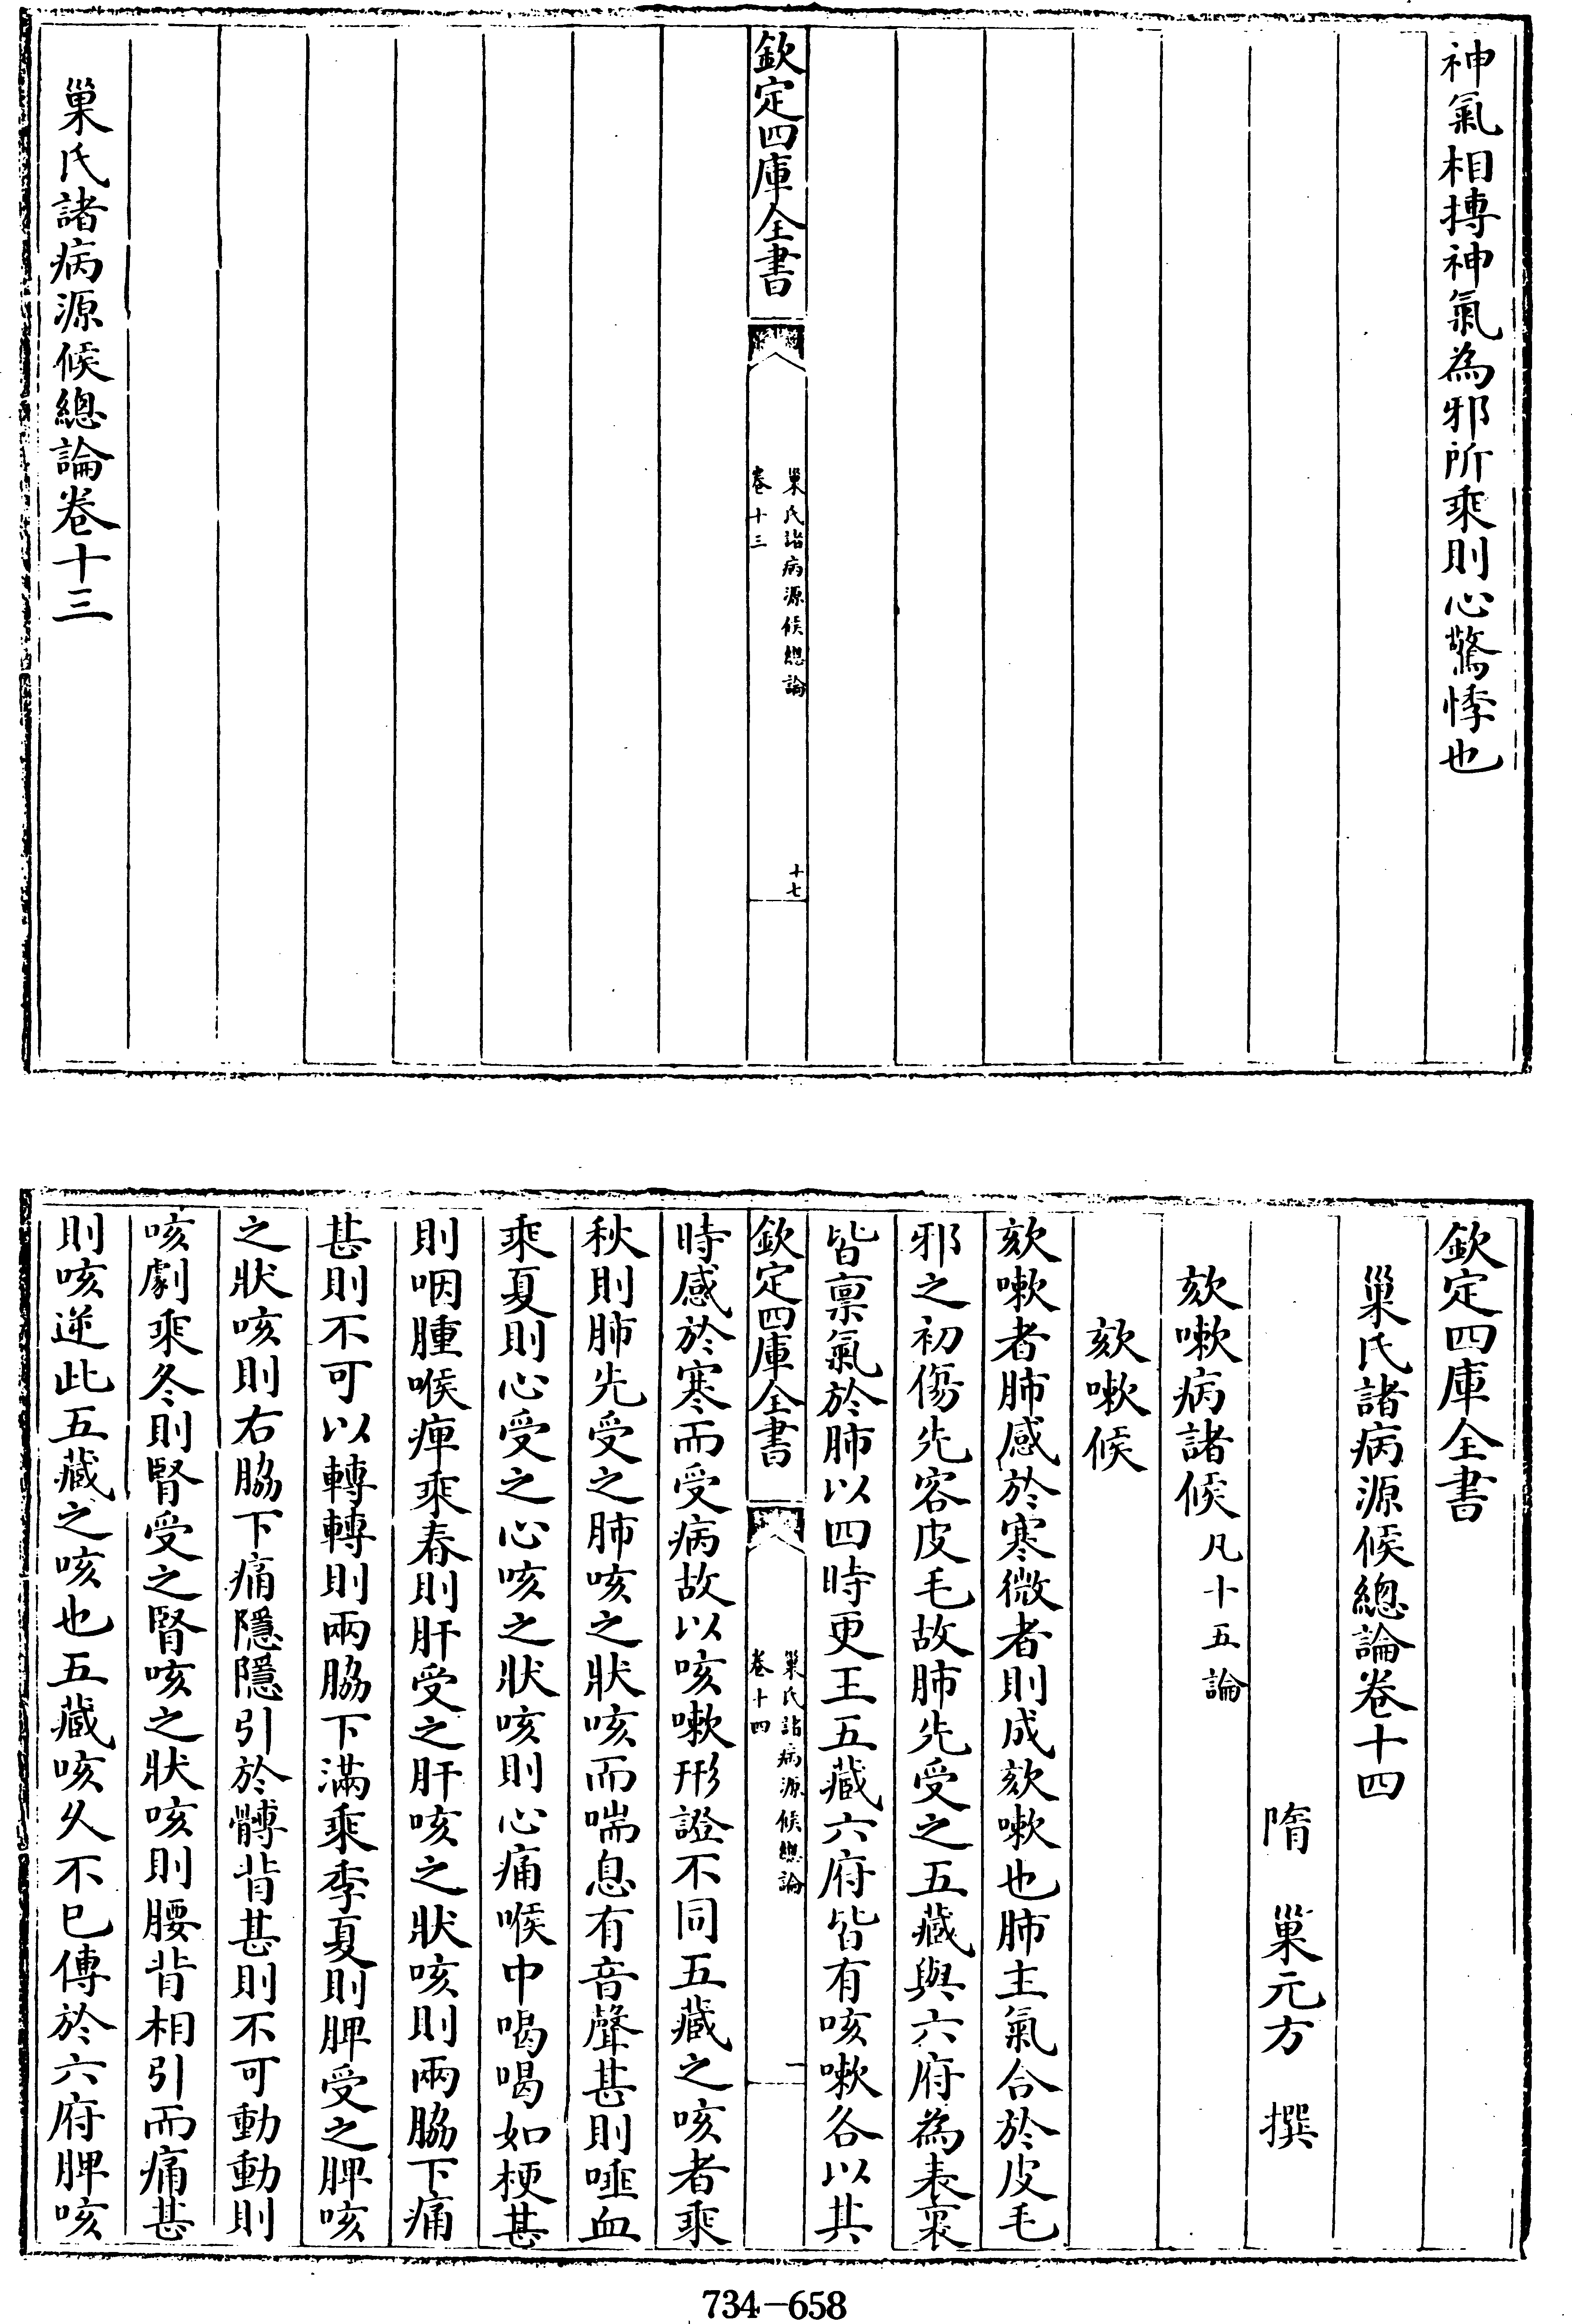 神氣相搏神氣為邪所乘則心驚悸也
欽定四庫全書
巢氏諸病源候總論
卷十三
十七
巢氏諸病源候總論卷十三
欽定四庫全書
巢氏諸病源候總論卷十四
隋 巢元方 撰
欬嗽病諸候凡十五論
欬嗽候
欬嗽者肺感於寒微者則成欬嗽也肺主氣合於皮毛
邪之初傷先客皮毛故肺先受之五藏與六府為表裏
皆禀氣於肺以四時更王五藏六府皆有咳嗽各以其
欽定四庫全書
巢氏諸病源候總論
卷十四
一
時感於寒而受病故以咳嗽形證不同五藏之咳者乘
秋則肺先受之肺咳之狀咳而喘息有音聲甚則唾血
乘夏則心受之心咳之狀咳則心痛喉中喝喝如梗甚
則咽腫喉痺乘春則肝受之肝咳之狀咳則兩脇下痛
甚則不可以轉轉則兩脇下滿乘季夏則脾受之脾咳
之狀咳則右脇下痛隱隱引於髆背甚則不可動動則
咳劇乘冬則腎受之腎咳之狀咳則腰背相引而痛甚
則咳逆此五藏之咳也五藏咳久不已傳於六府脾咳
734-658